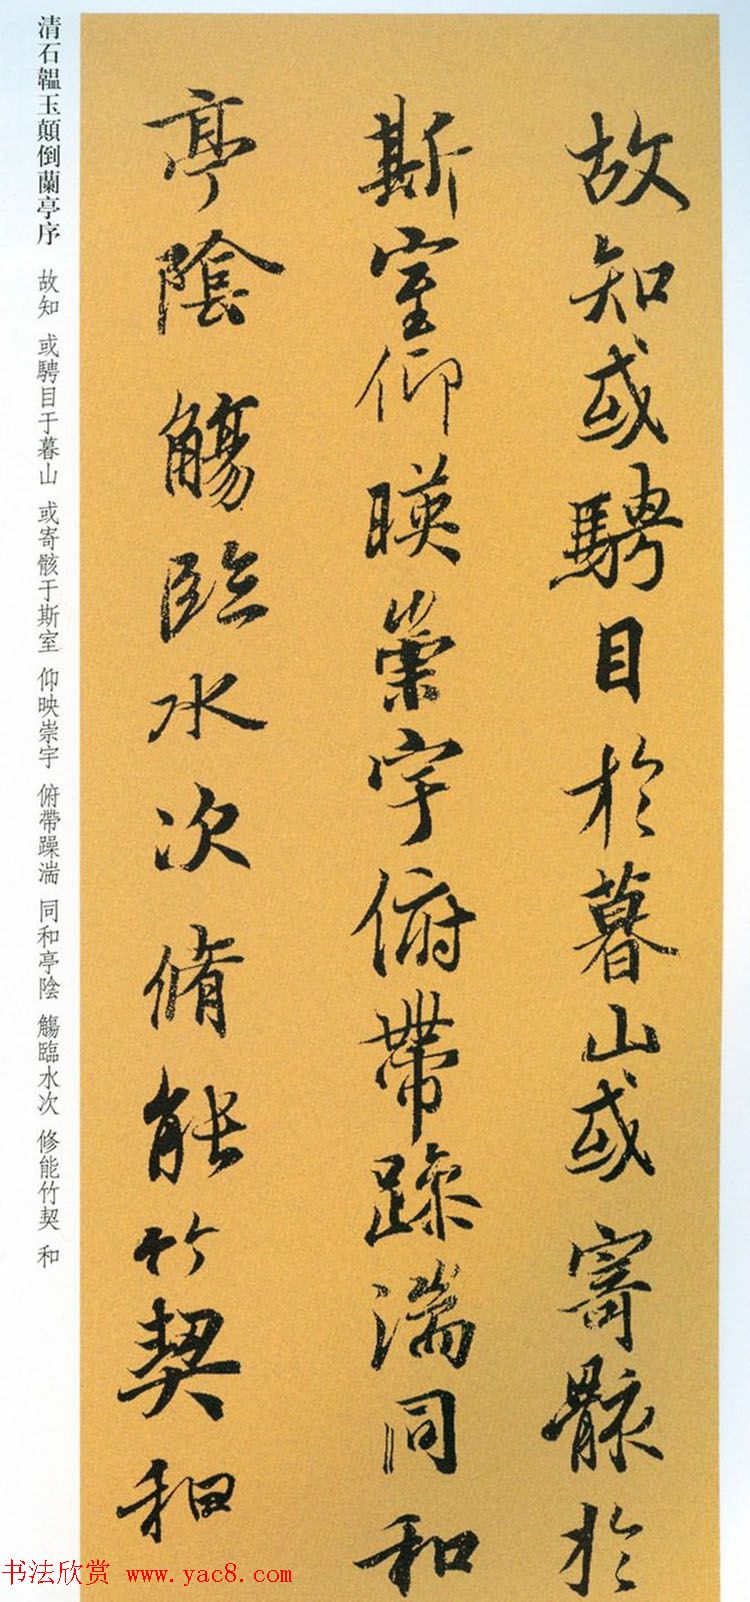 故知或騁目於暮山或寄骸於
斯室仰暎崇宇俯帶躁湍同和
亭陰觴臨水次脩能竹契和
清石韞玉顛倒蘭亭序 故知 或騁目于暮山 或寄骸于斯室 仰映崇宇 俯帶躁湍 同和亭陰 觴臨水次 修能竹契 和
书法欣赏 www.yac8.com